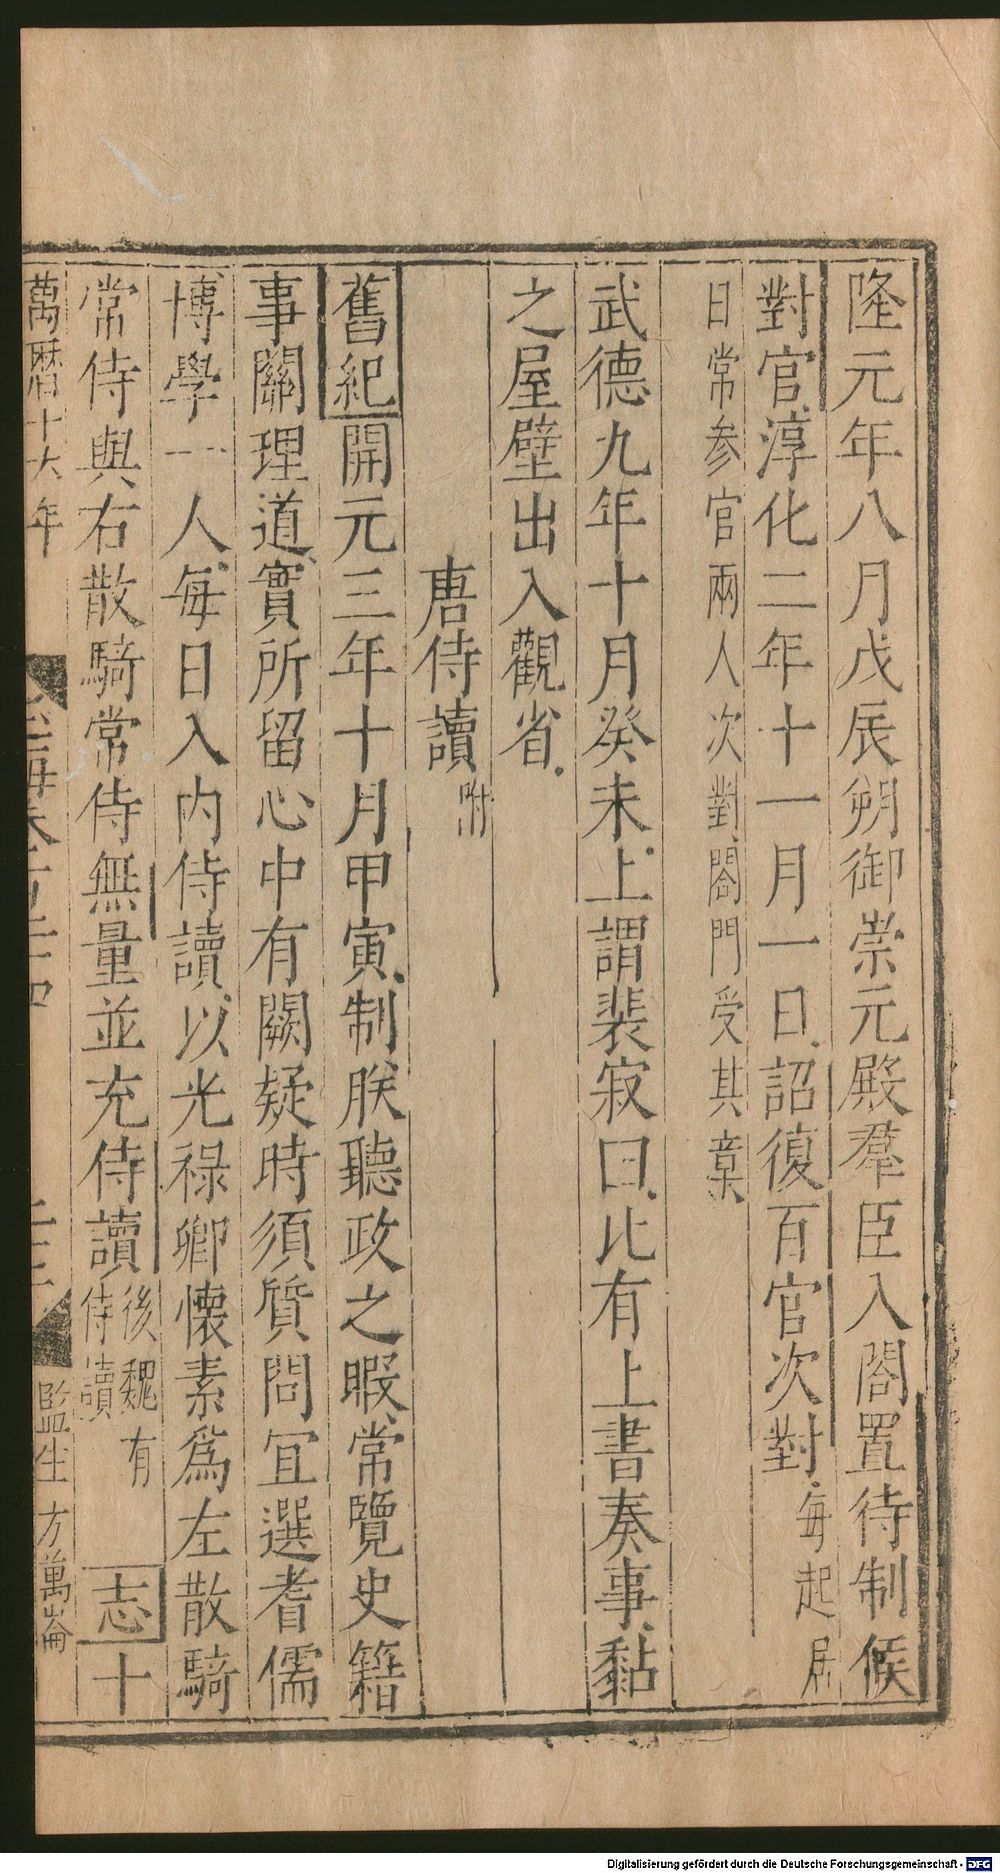 隆元年八月戊辰朔御崇元殿羣臣入閤置待制候
對官淳化二年十一月一日詔復百官次對每起居
日常參官兩人次對閤門受其章
武德九年十月癸未上謂裴寂曰比有上書奏事黏
之屋壁出入觀省
唐侍讀附
舊紀開元三年十月甲寅制朕聽政之暇常覽史籍
事關理道實所留心中有闕疑時須質問宜選耆儒
博學一人每日入內侍讀以光祿卿懷素爲左散騎
常侍與右散騎常侍無量並充侍讀後魏有侍讀志十
萬曆十六年
監生方萬崙
Digitalisierung gefördert durch die Deutsche Forschungsgemeinschaft - DFG